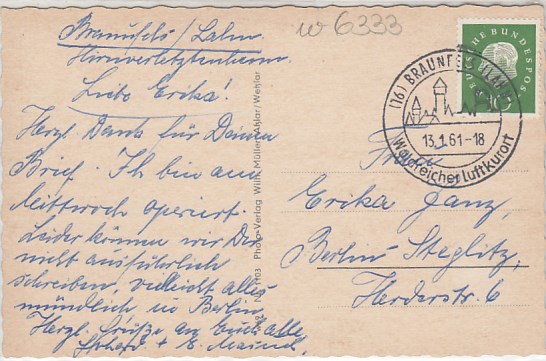 w 6333
Braunfels/Lahn
Hirnverletztenheim.
Liebe Erika!
Herzl. Dank für Deinen
Brief. Ich bin am
Mittwoch operiert.
Leider können wir Dir
nicht ausführlich
schreiben, vielleicht alles
mündlich in Berlin.
Herzl. Grüße an Euch alle
+ E.
Photo-Verlag Willi Müller, Aßlar/Wetzlar
DEUTSCHE BUNDESPOST
10
(16) BRAUNFELS (LAHN)
13.1.61-18
Waldreicher Luftkurort
Frau
Erika Janz,
Berlin-Steglitz,
Herderstr. 6